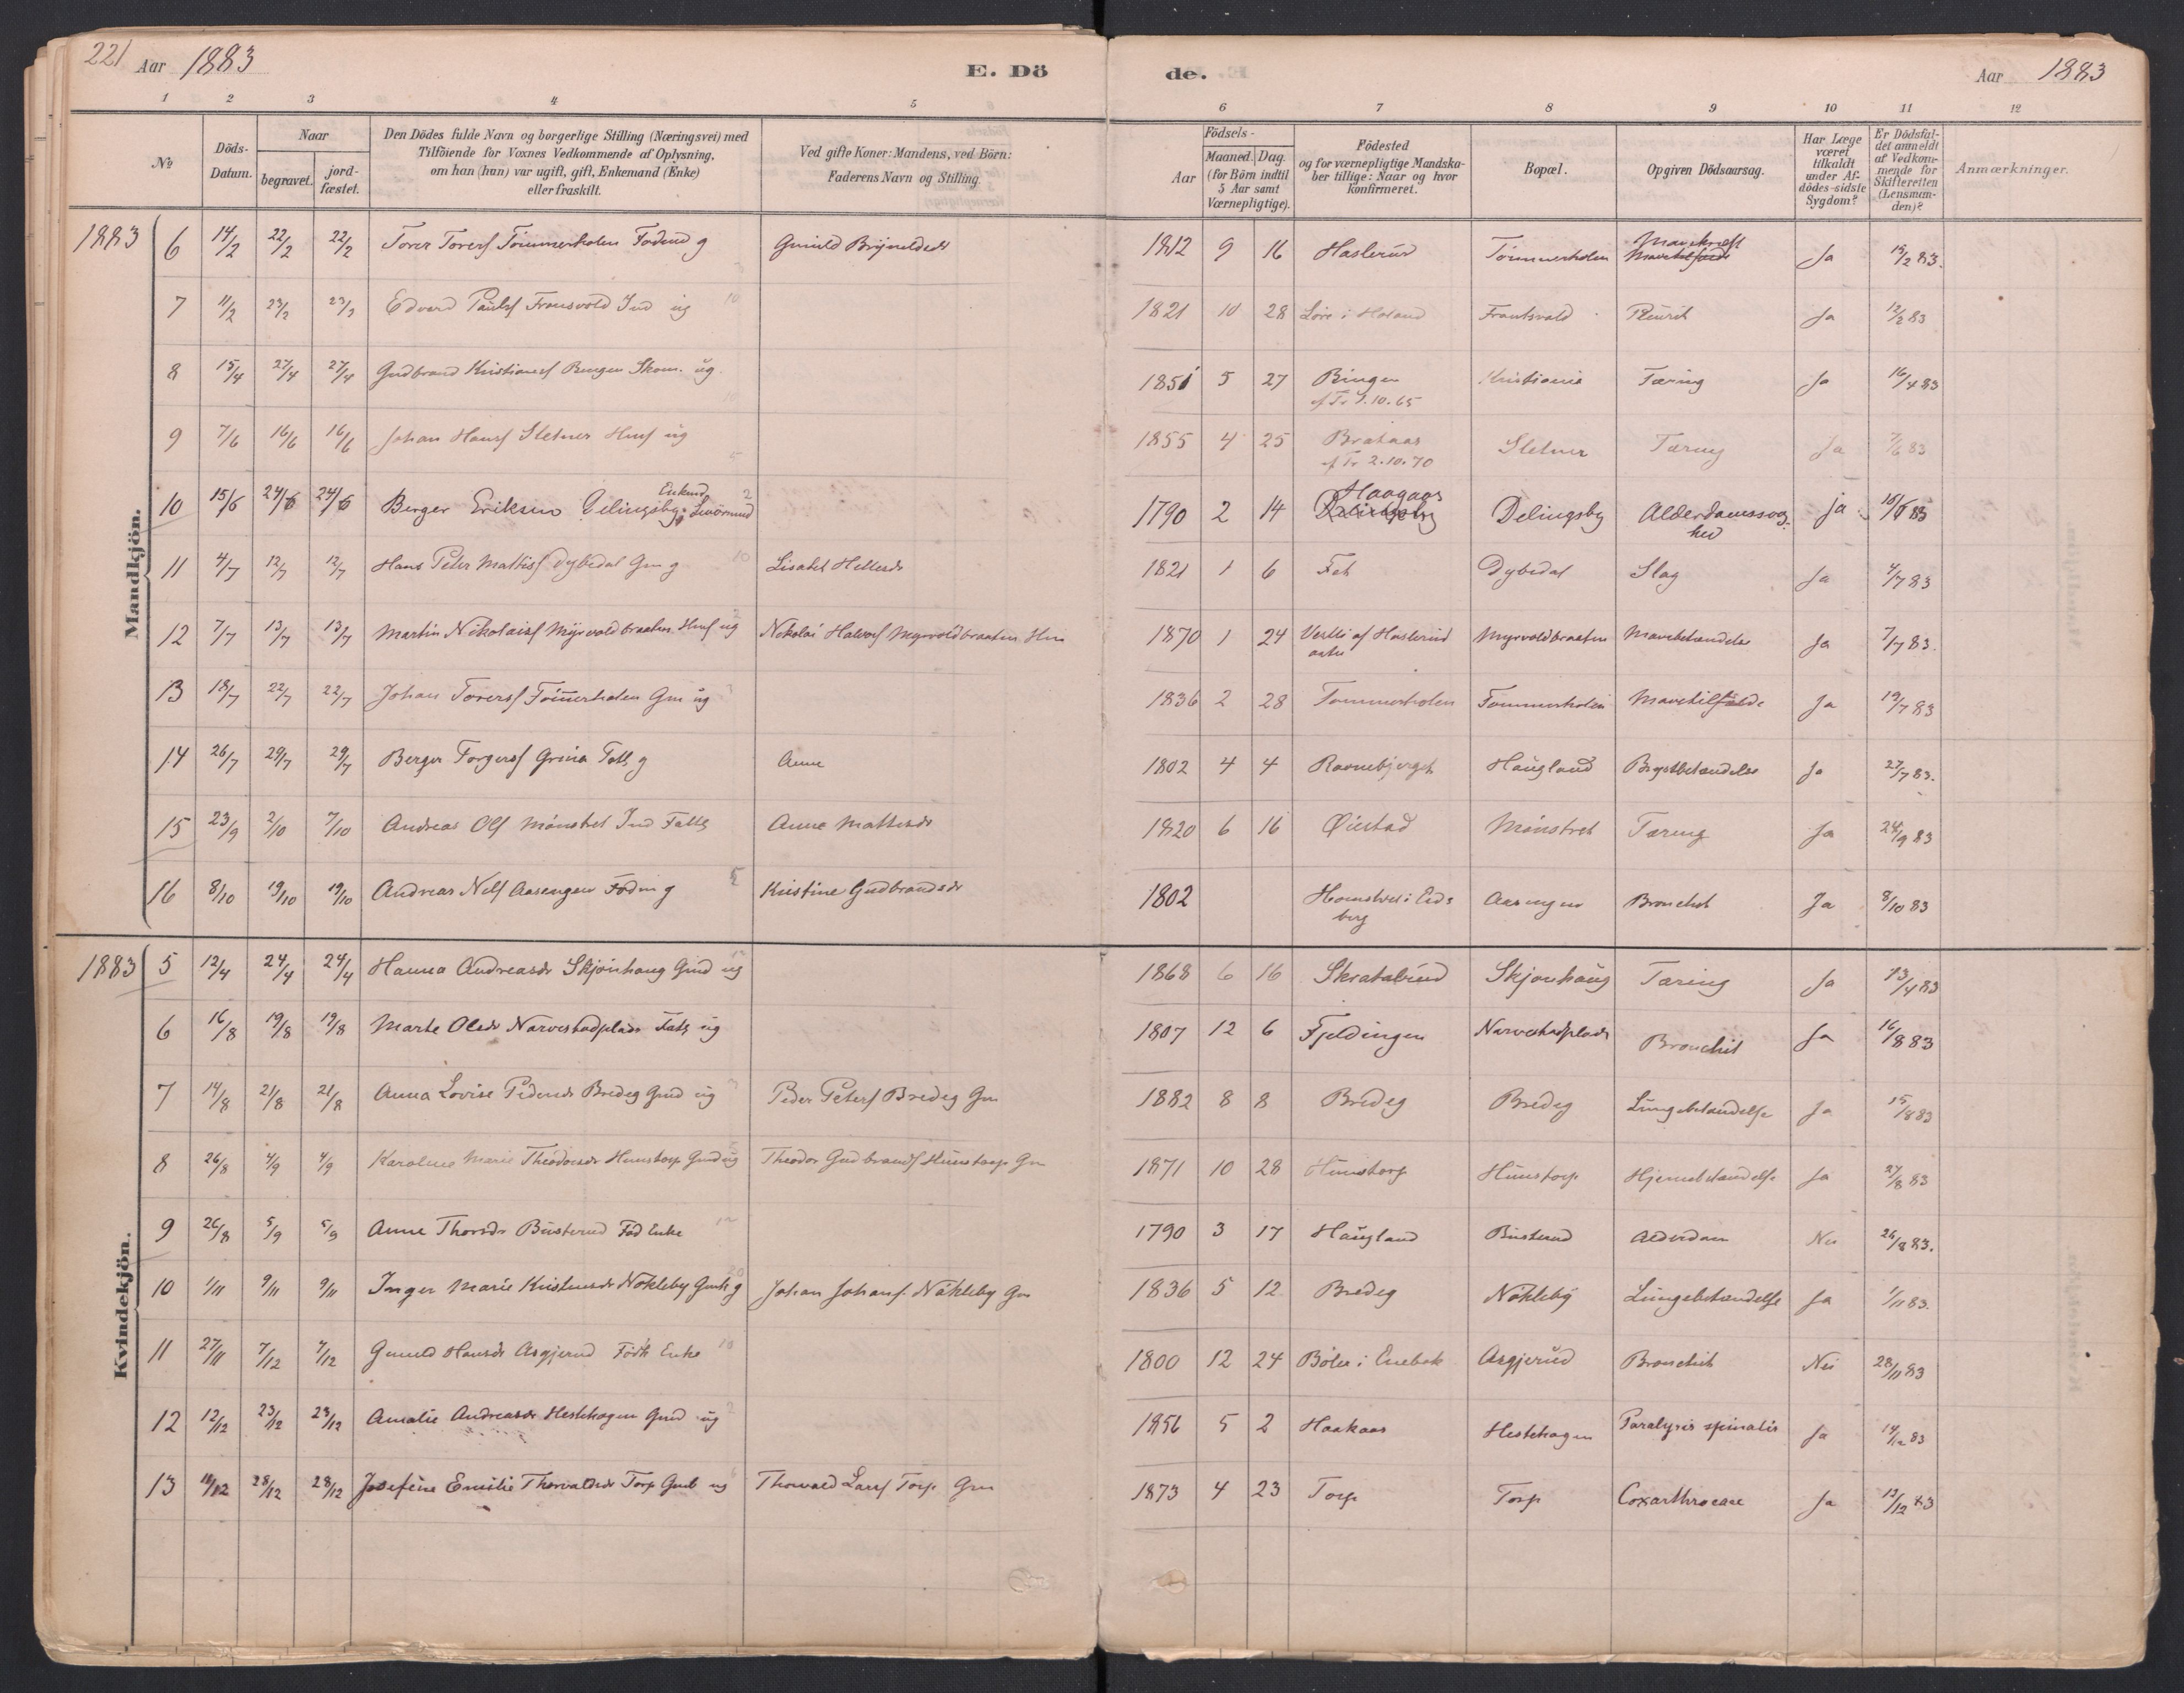 221 Aar 1883 E. Dö de. Aar 1883
1 2 3 4 5 6 7 8 9 10 11 12
No
Döds-Datum.
Naar
begravet.
jord-fæstet.
Den Dödes fulde Navn og borgerlige Stilling (Næringsvei) med
Tilföiende for Voxnes Vedkommende af Oplysning,
om han (hun) var ugift, gift, Enkemand (Enke)
eller fraskilt.
Ved gifte Koner: Mandens, ved Börn:
Faderens Navn og Stilling.
Födsels-
Aar
Maaned. Dag.
(for Börn indtil
5 Aar samt
Værnepligtige).
Födested
og for værnepligtige Mandska-
ber tillige: Naar og hvor
konfirmeret.
Bopæl.
Opgiven Dödsaarsag.
Har Læge
været
tilkaldt
under Af-
dödes sidste
Sygdom?
Er Dödsfal-
det anmeldt
af Vedkom-
mende for
Skifteretten
(Lensman-
den)?
Anmærkninger.
Mandkjön.
1883 6 14/2 22/2 22/2 Torer Torers Tömmerholen g 1812 9 16 Haslerud Tömmerholen Mavekræft Ja 15/2 83.
7 11/2 23/2 23/2 Edvard Pauls Fransvold Ind ug 1821 10 28 i Holand Frantsvold Pleurit Ja 12/2 83
8 15/4 27/4 27/4 Gudbrand Kristians Bingen Skom. ug. 1851 5 27 Bingen Kristiania Tæring Ja 16/4 83
af Tr 1.10.65
9 7/6 16/6 16/6 Johan Hans Sletner Hmf ug 1855 4 25 Brataas Sletner Tæring Ja 7/6 83
af Tr 2.10.70
10 15/6 24/6 24/6 Berger Eriksen Delingsby Enkmd 1790 2 14 Haagaas Delingsby Alderdomssvag-
hed ja 16/6 83
11 4/7 12/7 12/7 Hans Peter Mattis Dybedal Gm g Lisabet Hellesdr 1821 1 6 Fet Dybedal Slag Ja 4/7 83
12 7/7 13/7 13/7 Martin Nikolais Myrvoldbraaten Hmf ug Nikolai Halvors Myrvoldbraaten Hm 1870 1 24 Vestli af Haslerud Myrvoldbraaten Mavebetændelse Ja 7/7 83.
13 18/7 22/7 22/7 Johan Torers Tömmerholen Gm ug 1836 2 28 Tommerholen Tommerholen Mavetilfælde Ja 19/7 83
14 26/7 29/7 29/7 Berger Torgers Grina Fatt g Anne 1802 4 4 Ravnebjerget Haugland Brystbetændelse Ja 27/7 83.
15 23/9 2/10 7/10 Andreas Ols Mönstret Ind Fattg Anne Mattisdr 1820 6 16 Øiestad Mönstret Tæring Ja 24/9 83
16 8/10 19/10 19/10 Andreas Nils Aasengen g Kristine Gudbrandsdr 1802 i Eids
berg Aasengen Bronchit Ja 8/10 83
Kvindekjön.
1883 5 12/4 24/4 24/4 Hanna Andreasdr Skjönhaug Gmd ug 1868 6 16 Skratalund Skjonhaug Tæring Ja 13/4 83
6 16/8 19/8 19/8 Marte Olsdr Narvestadplads Fatt ug 1807 12 6 Fjeldingen Narvestadplads Bronchit Ja 16/8 83
7 14/8 21/8 21/8 Anna Lovise Pedersdr Bredeg Gmd ug Peder Peters Bredeg Gm 1882 8 8 Bredeg Bredeg Lungebetændelse Ja 15/8 83
8 26/8 4/9 4/9 Karoline Marie Theodorsdr Hunstorp Gmd ug Theodor Gudbrands Hunstorp Gm 1871 10 28 Hunstorp Hunstorp Hjernebetændelse Ja 27/8 83
9 26/8 5/9 5/9 Anne Thorsdr Busterud Fød Enke 1790 3 17 Haugland Busterud Alderdom Nei 26/8 83.
10 1/11 9/11 9/11 Inger Marie Kristensdr Nökleby Gmk g Johan Johans Nökleby Gm 1836 5 12 Bredeg Nökleby Lungebetændelse Ja 1/11 83.
11 27/11 7/12 7/12 Gunild Hansdr Asgjerud Enke 1800 12 24 Böler i Enebak Asgjerud Bronchit Nei 28/11 83
12 12/12 23/12 23/12 Amalie Andreasdr Hestehagen Gmd ug 1856 5 2 Haakaas Hestehagen Paralysis spinalis Ja 14/12 83
13 28/12 28/12 Josefine Emilie Thorvaldsdr Torp Gmd ug Thorvald Lars Torp Gm 1873 4 23 Torp Torp Coxarthrocace Ja 12/12 83